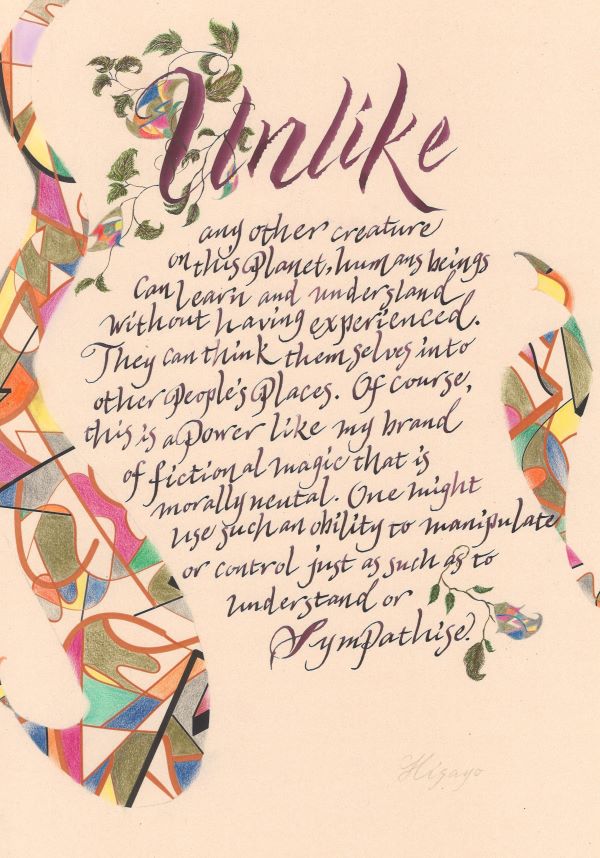 Unlike
any other creature
on this planet, humans beings
Can learn and understand
without having experienced.
They can think themselves into
other people's places. Of course,
this is a power like my brand
of fictional magic that is
morally neutal. One might
use such an ability to manipulate
or control just as such as to
understand or
Sympathise.
Hisayo